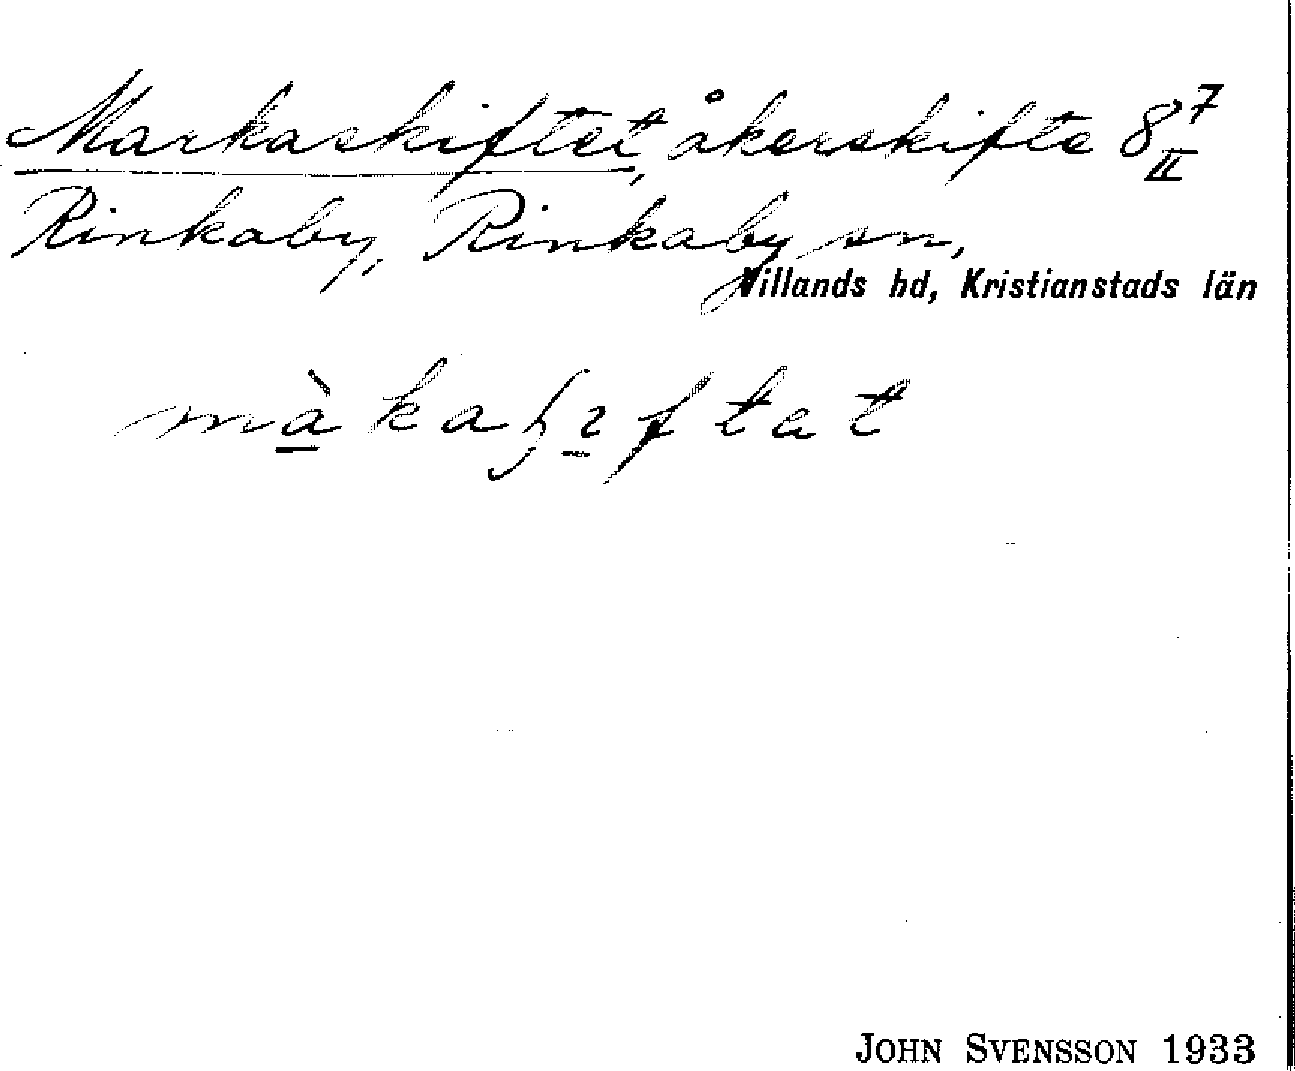 Markaskiftet, åkerskifte 8 7 II
Rinkaby, Rinkaby sn,
Villands hd, Kristianstads län
JOHN SVENSSON 1933